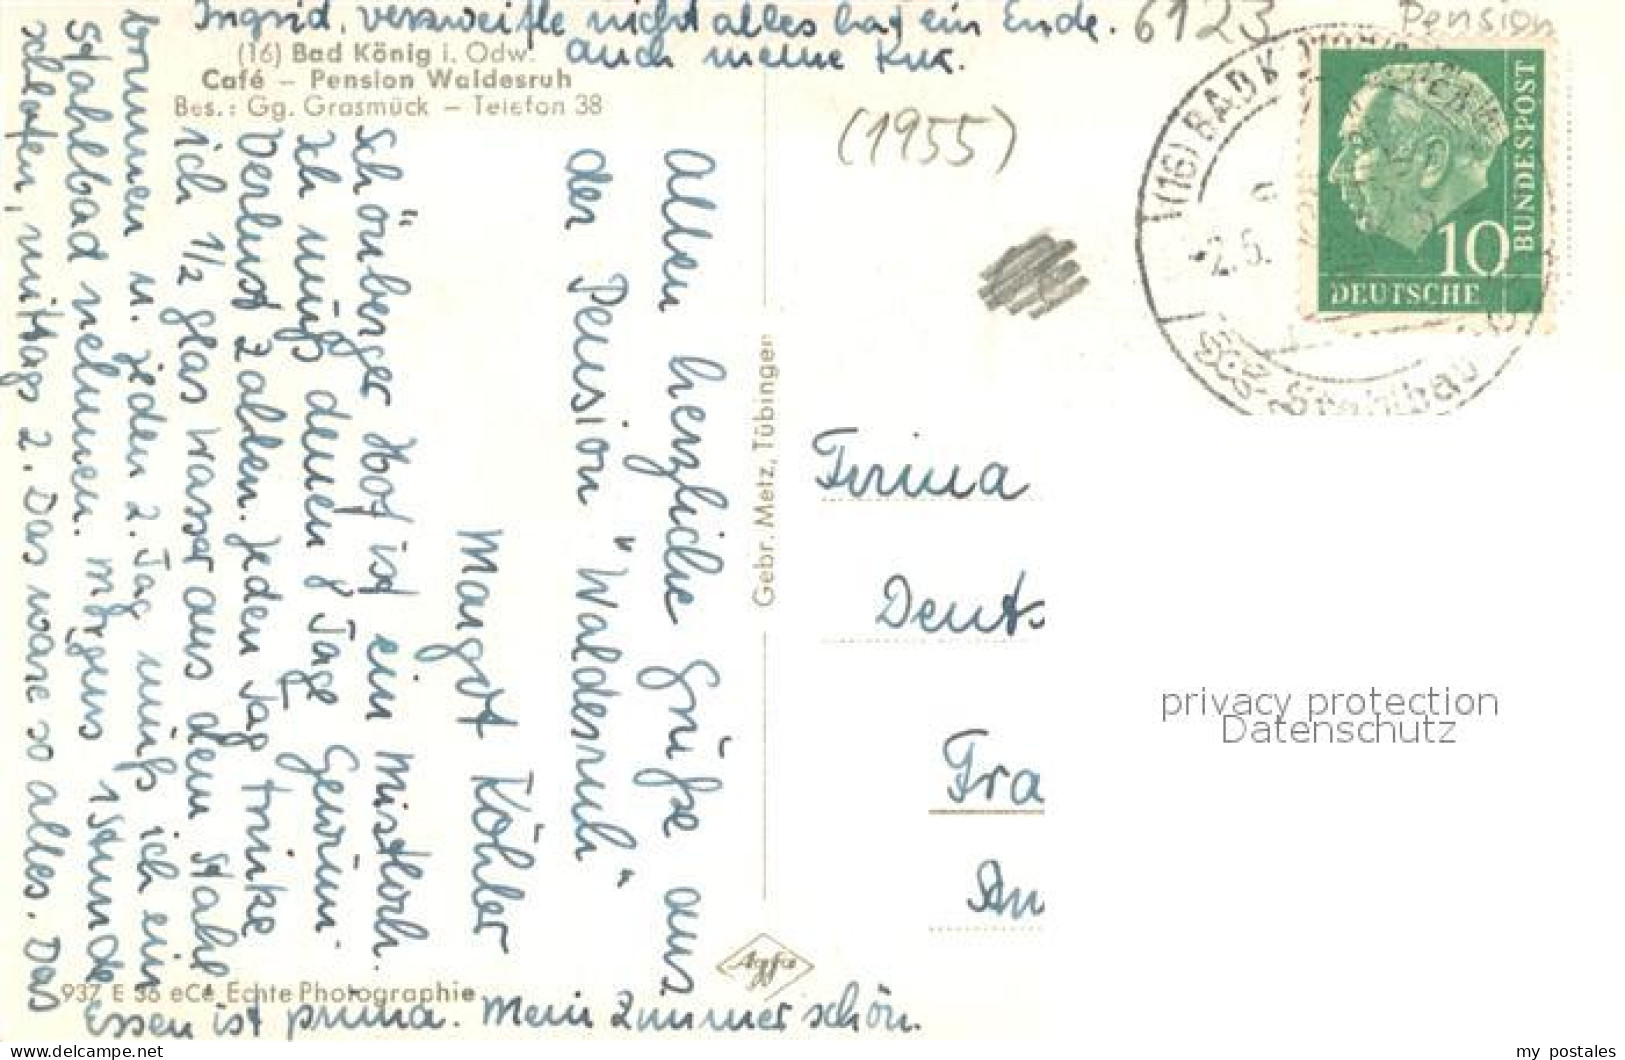 Ingrid, verzweifle nicht alles hat ein Ende.
auch meine Kur.
6123
Pension
(16) Bad König i. Odw.
Café – Pension Waldesruh
Bes.: Gg. Grasmück – Telefon 38
(1955)
(16) BAD K
-2.5.
DEUTSCHE
BUNDESPOST
10
Allen herzliche Grüße aus
der Pension "Waldesruh"
Margot Köhler
Schönberger Hof ist ein Mistloch.
Ich muß denen 8 Tage Gewinn
Verlust zahlen. Jeden Tag trinke
ich 1½ Glas Wasser aus dem Stahl
brunnen u. jeden 2. Tag muß ich ein
Stahlbad nehmen. Morgens 1 Stunde
schlafen, mittags 2. Das wäre so alles. Das
Essen ist prima. Mein Zimmer schön.
Gebr. Metz, Tübingen
Agfa
937 E 36 eCé Echte Photographie
Firma
Deuts
Fra
An
privacy protection
Datenschutz
www.ansichtskartenhandel.com
my_postales